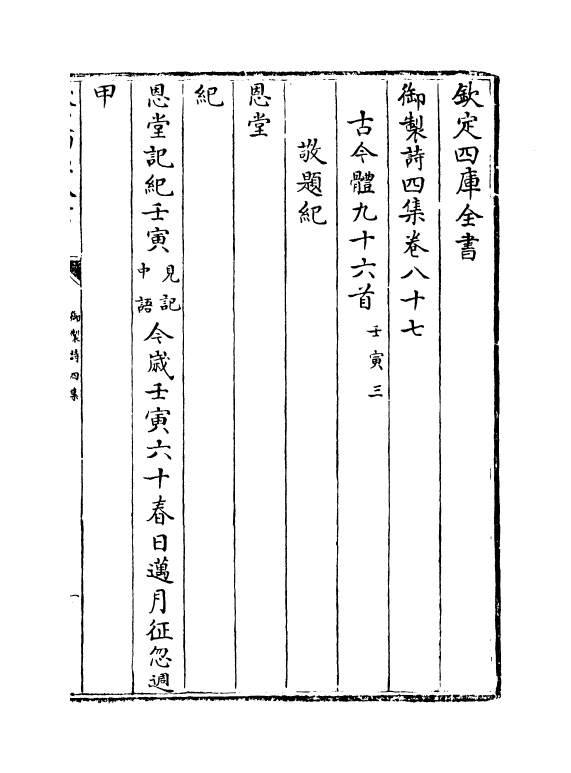 欽定四庫全書
御製詩四集卷八十七
古今體九十六首 壬寅三
敬題紀
恩堂
紀
恩堂記紀壬寅 見記中語 今歲壬寅六十春日邁月征忽週
甲
御製詩四集
一